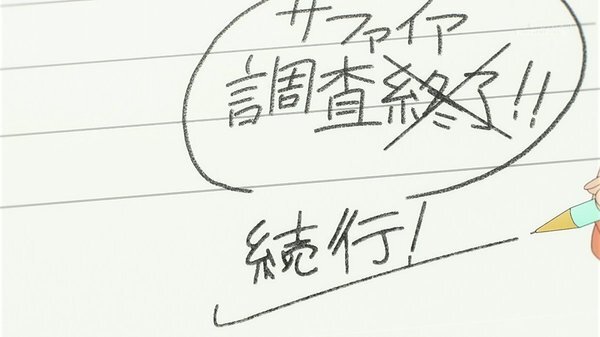 サファイア
調査終了!!
続行!